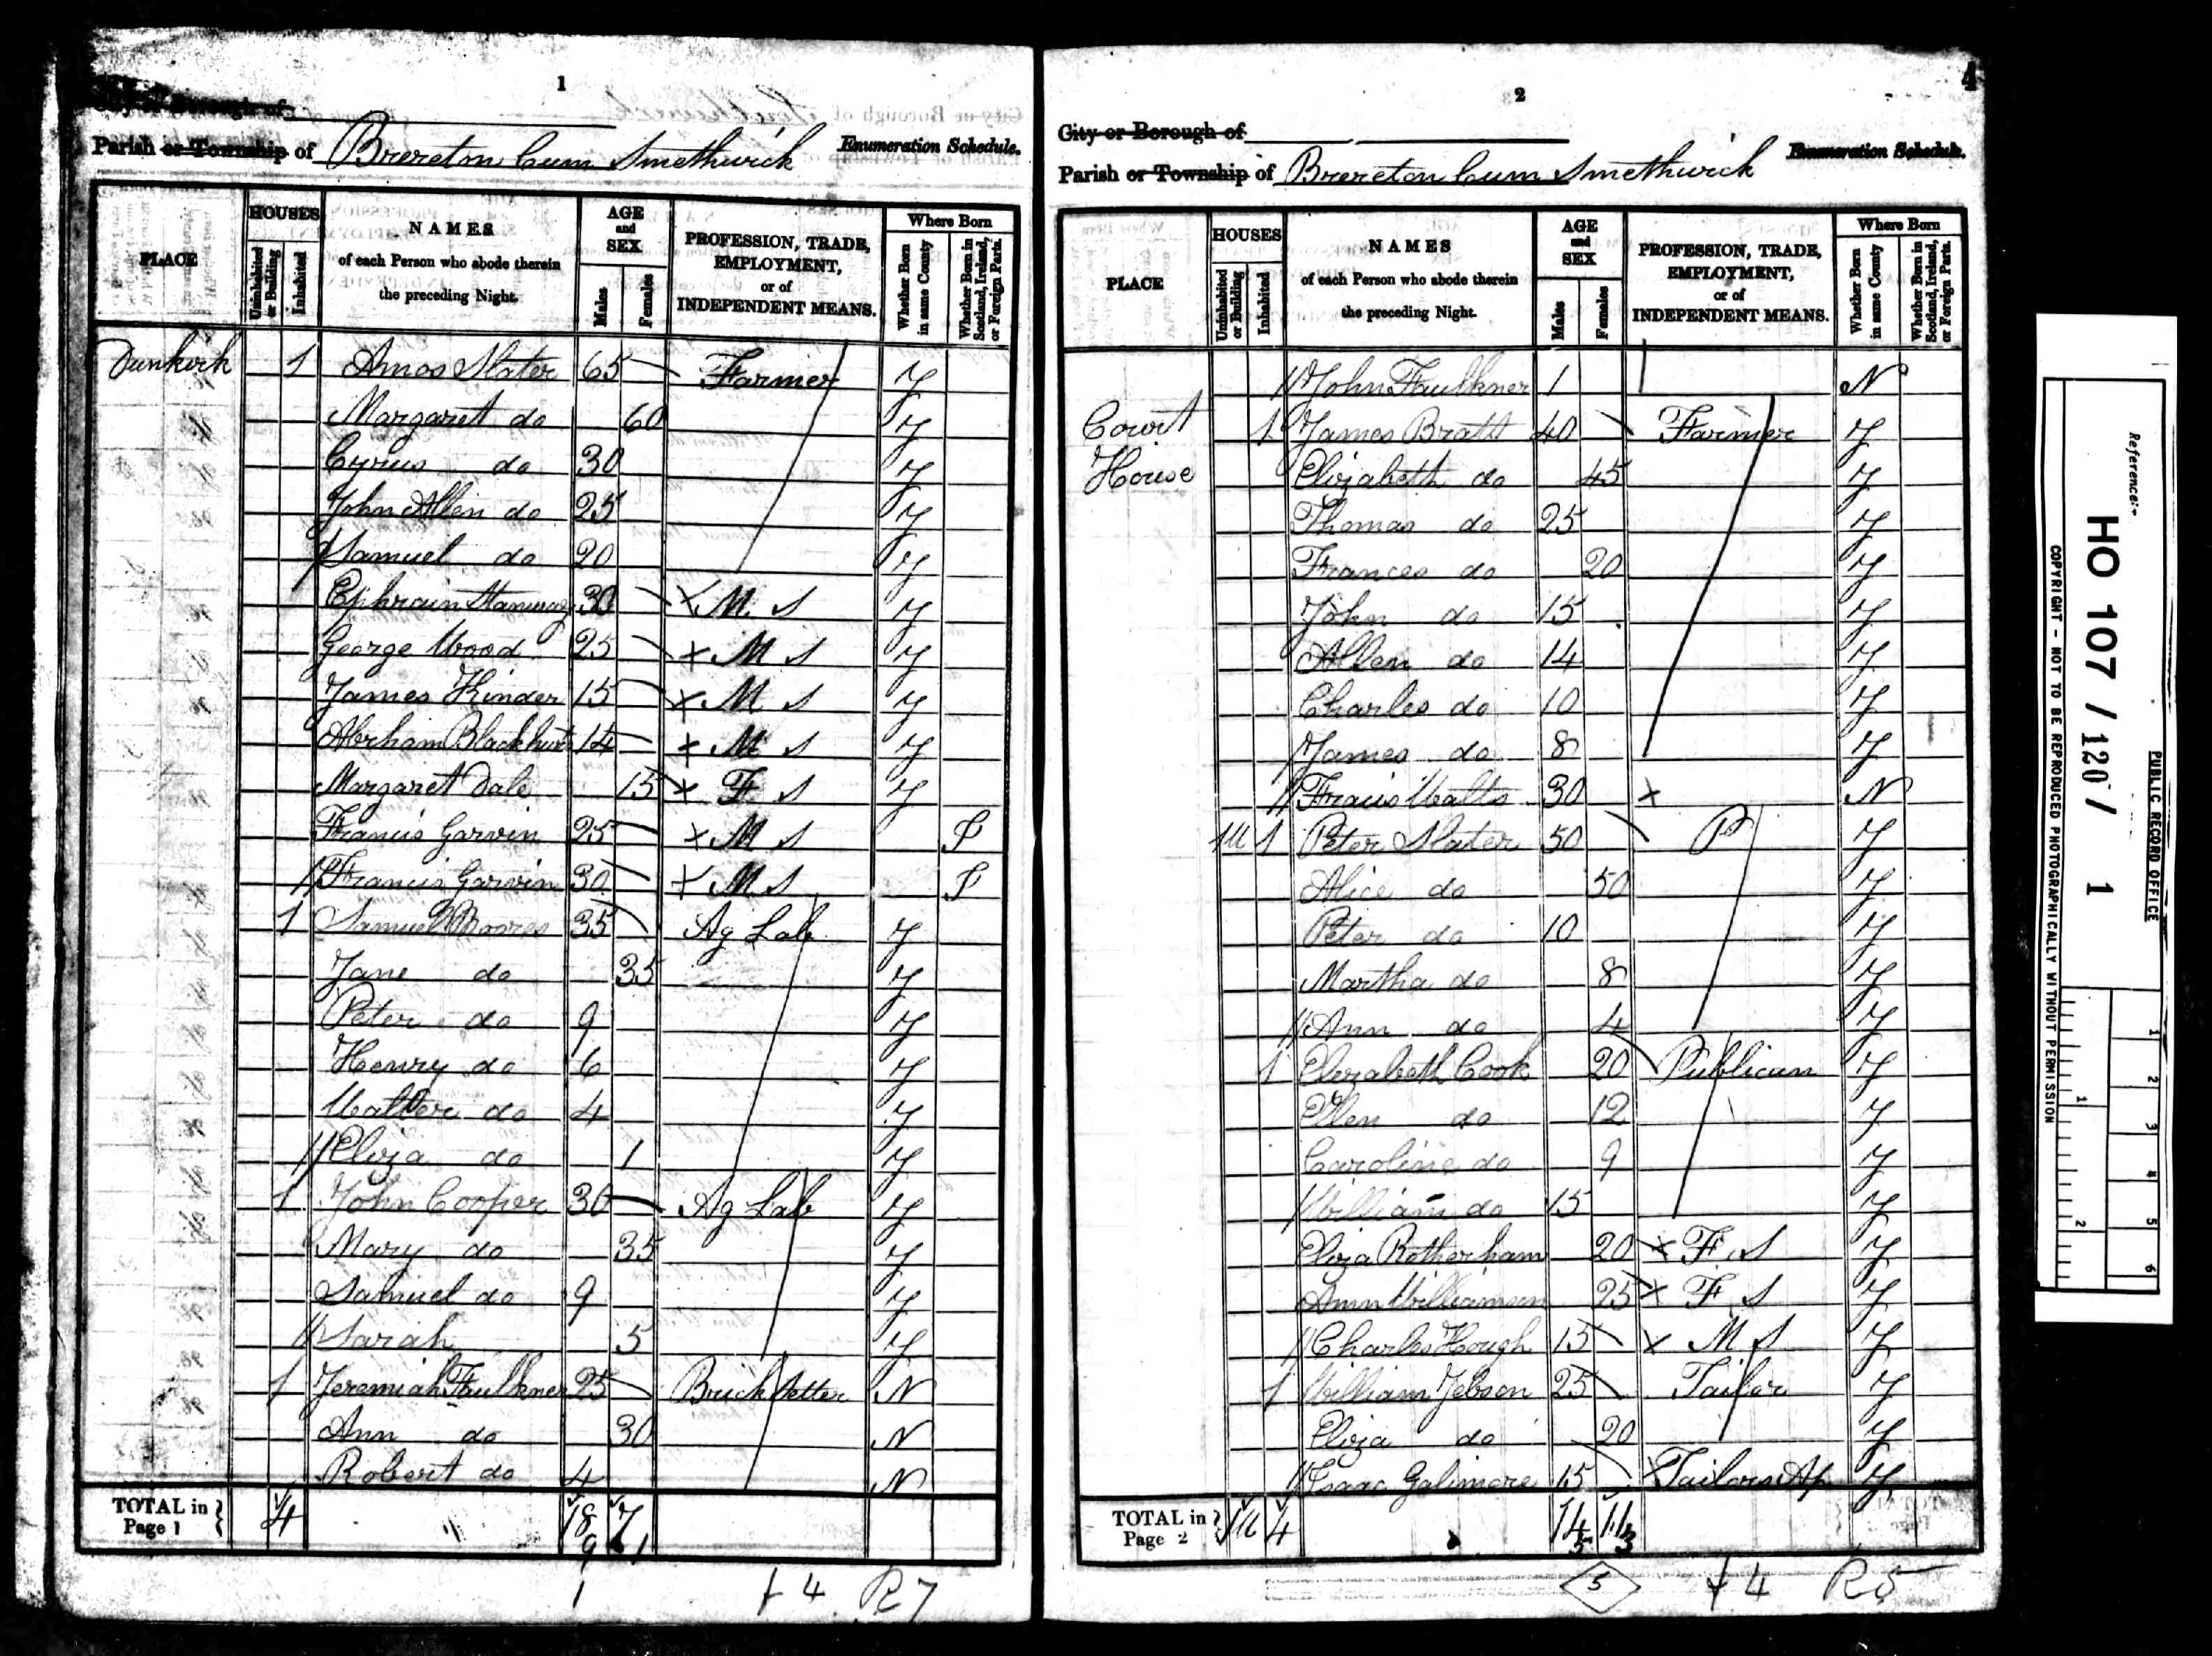 1
City or Borough of
Parish or Township of Brereton Cum Smethwick Enumeration Schedule.
PLACE
HOUSES
Uninhabited or Building
Inhabited
NAMES
of each Person who abode therein
the preceding Night.
AGE
and
SEX
Males
Females
PROFESSION, TRADE,
EMPLOYMENT,
or of
INDEPENDENT MEANS.
Where Born
Whether Born in same County
Whether Born in Scotland, Ireland, or Foreign Parts.
Dunkirk 1 Amos Slater 65 Farmer Y
Margaret do 60 Y
Cyrus do 30 Y
John Allen do 25 Y
Samuel do 20 Y
Ephraim 30 M S Y
George Wood 25 M S Y
James Kinder 15 M S Y
Abrham Blackhurst 14 M S Y
Margaret Dale 15 F S Y
Francis Garvin 25 M S I
Francis Garvin 30 M S I
1 Samuel Moores 35 Ag Lab Y
Jane do 35 Y
Peter do 9 Y
Henry do 6 Y
Walter do 4 Y
Eliza do 1 Y
1 John Cooper 30 Ag Lab Y
Mary do 35 Y
Samuel do 9 Y
Sarah 5 Y
1 Jeremiah Faulkner 25 Brick Setter N
Ann do 30 N
Robert do 4 N
TOTAL in Page 1 4 18 7
9 1
1 4 R7
2
City or Borough of
Parish or Township of Brereton Cum Smethwick Enumeration Schedule.
PLACE
HOUSES
Uninhabited or Building
Inhabited
NAMES
of each Person who abode therein
the preceding Night.
AGE
and
SEX
Males
Females
PROFESSION, TRADE,
EMPLOYMENT,
or of
INDEPENDENT MEANS.
Where Born
Whether Born in same County
Whether Born in Scotland, Ireland, or Foreign Parts.
John Faulkner 1 N
Court 1 James Bratt 40 Farmer Y
House Elizabeth do 45 Y
Thomas do 25 Y
Frances do 20 Y
John do 15 Y
Allen do 14 Y
Charles do 10 Y
James do 8 Y
Francis Walts 30 N
1U 1 Peter Slater 50 P Y
Alice do 50 Y
Peter do 10 Y
Martha do 8 Y
Ann do 4 Y
1 Elizabeth Cook 20 Publican Y
Ellen do 12 Y
Caroline do 9 Y
William do 15 Y
Eliza Rotherham 20 F S Y
Ann Williamson 25 F S Y
Charles Hough 15 M S Y
1 William Jebson 25 Tailor Y
Eliza do 20 Y
Isaac Galimore 15 Tailors Ap Y
TOTAL in Page 2 1U 4 14 11
5 3
5 4 R5
Reference:-
HO 107 / 120 / 1
PUBLIC RECORD OFFICE
COPYRIGHT - NOT TO BE REPRODUCED PHOTOGRAPHICALLY WITHOUT PERMISSION
1 2
1 2 3 4 5 6